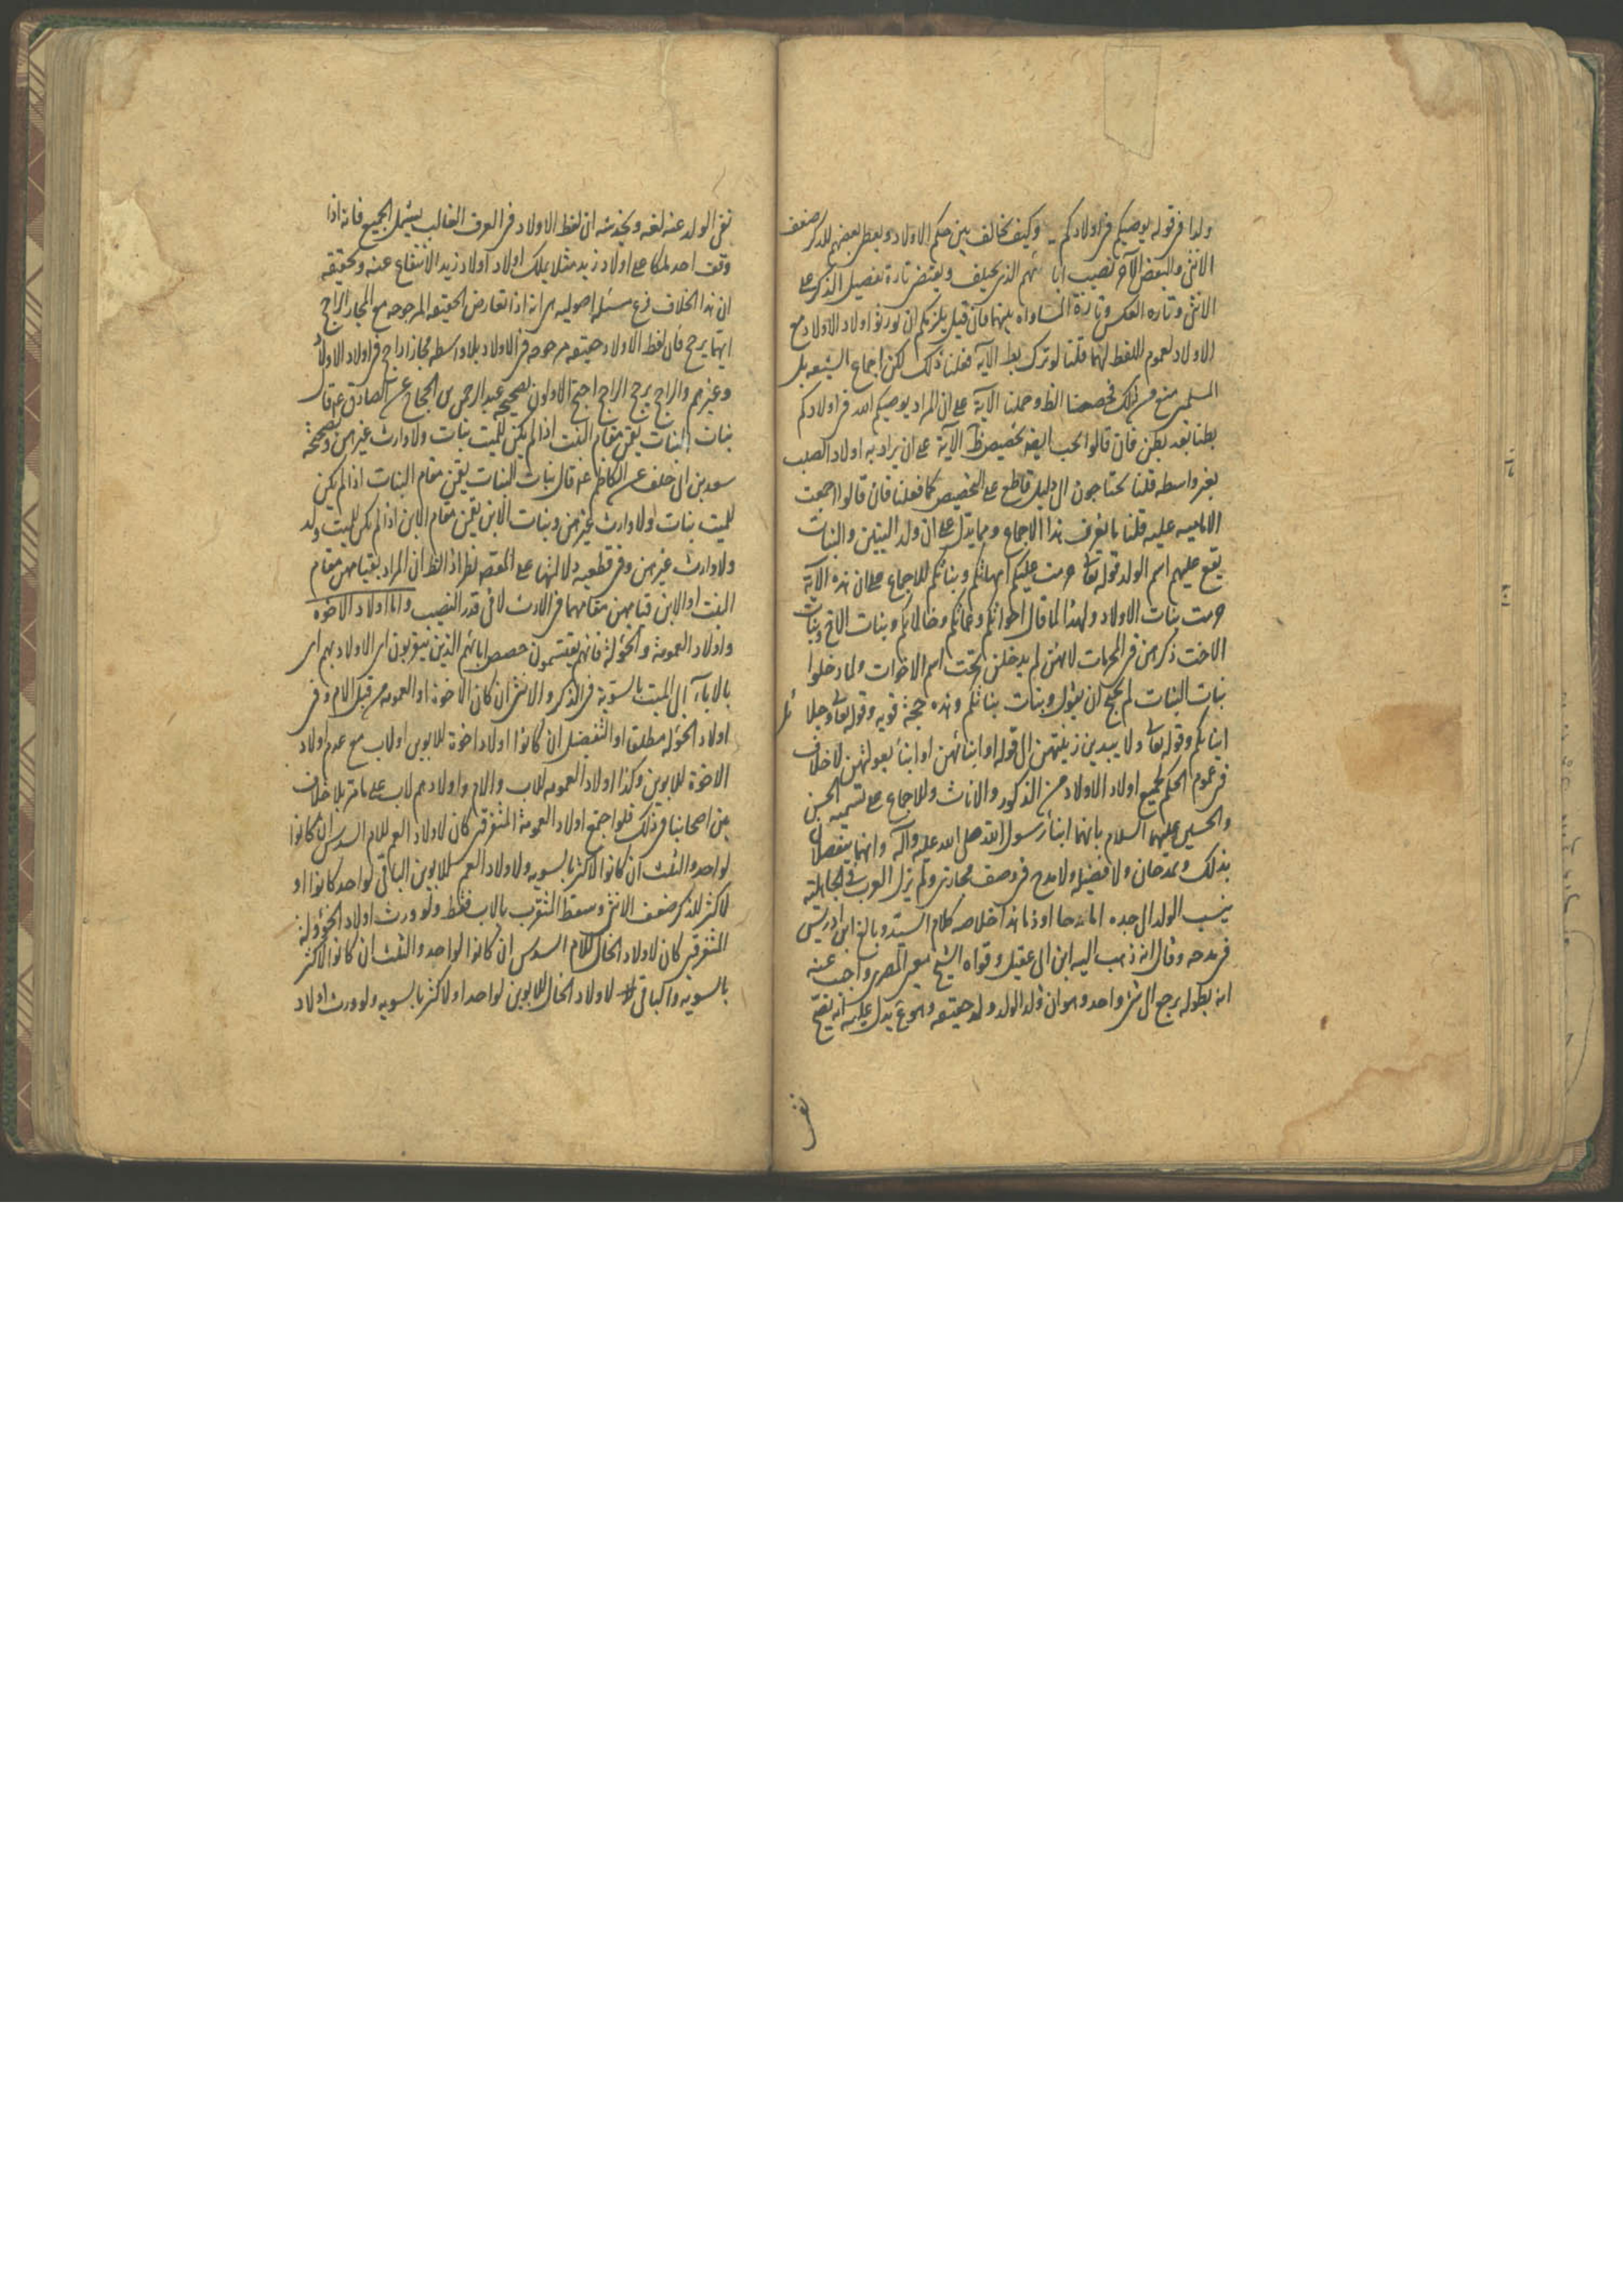 ولدا فى قوله يوصيكم فى اولادكم وكيف تخالف بين حكم الاولاد ويعطى بعضهم للذكر ضعف
الانثى والبعض الآخر نصيب ابائهم الذى يختلف ويقتضى تارة تفضيل الذكر على
الانثى وتاره العكس وتارة المساواه بينهما فان قيل يلزمكم ان تورثوا اولاد الاولاد مع
الاولاد لعموم اللفظ لهما قلنا لو ترك بظ الآية فعلنا ذلك لكن اجماع الشيعه بل
المسلمين منع من ذلك فخصصنا الظ وحملنا الآية على ان المراد يوصيكم الله فى اولادكم
بطنا بعد بطن فان قالوا يجب ايضا تخصيص ظ الآية على ان يراد به اولاد الصلب
بغير واسطه قلنا تحتاجون الى دليل قاطع على التخصيص كما فعلنا فان قالوا اجمعت
الاماميه عليه قلنا ما نعرف هذا الاجماع ومما يدل على ان ولد البنين والبنات
يقع عليهم اسم الولد قوله تعالى حرمت عليكم امهاتكم وبناتكم للاجماع على ان هذه الآية
حرمت بنات الاولاد ولهذا لما قال اخواتكم وعماتكم وخالاتكم وبنات الاخ وبنات
الاخت ذكرهن فى المحرمات لانهن لم يدخلن تحت اسم الاخوات ولما دخلوا
بنات البنات لم يحتج ان يقول وبنات بناتكم وهذه حجة قويه وقوله تعالى وحلائل
ابنائكم وقوله تعالى ولا يبدين زينتهن الى قوله او ابنائهن او ابناء بعولتهن لا خلاف
فى عموم الحكم لجميع اولاد الاولاد من الذكور والاناث وللاجماع على تسمية الحسن
والحسين عليهما السلام بانهما ابنا رسول الله صلى الله عليه وآله وانهما يفضلان
بذلك ويمدحان ولا فضيلة ولا مدح فى وصف مجازى ولم يزل العرب فى الجاهلية
ينسب الولد الى جده اما مدحا او ذما هذا خلاصه كلام السيد وبالغ ابن ادريس
فى مدحه وقال انه ذهب اليه ابن ابى عقيل وقواه الشيخ معين المصرى واجيب عنه
انه بطوله يرجع الى شئ واحد وهو ان ولد الولد ولد حقيقه وهو ع يدل عليه انه يصح
نفى
نفى الولد عنه لغه ويخدشه ان لفظ الاولاد فى العرف الغالب يشمل الجميع فانه اذا
وقف احد ملكا على اولاد زيد مثلا يملك اولاد اولاد زيد الانتفاع عنه وتحقيقه
ان هذا الخلاف فرع مسئله اصوليه هى انه اذا تعارض الحقيقه المرجوحه مع المجاز الراجح
ايهما يرجح فان لفظ الاولاد حقيقه مرجوحه فى الاولاد بلا واسطه مجاز راجح فى اولاد الاولاد
وغيرهم والراجح يرجح الراجح احتج الاولون بصحيحه عبد الرحمن بن الحجاج عن الصادق ع قال
بنات البنات يقمن مقام البنت اذا لم يكن للميت بنات ولا وارث غيرهن وبصحيحة
سعد بن ابى خلف عن الكاظم ع قال بنات البنات يقمن مقام البنات اذا لم يكن
للميت بنات ولا وارث غيرهن وبنات الابن يقمن مقام الابن اذا لم يكن للميت ولد
ولا وارث غيرهن وفى قطعيه دلالتهما على المقصد نظر اذ الظ ان المراد بقيامهن مقام
البنت او الابن قيامهن مقامهما فى الارث لا فى قدر النصيب واما اولاد الاخوه
واولاد العمومة والخؤلة فانهم يقتسمون حصص ابائهم الذين يتقربون اى الاولاد بهم اى
بالاباء الى الميت بالسوية فى الذكر والانثى ان كان الاخوة او العمومه من قبل الام وفى
اولاد الخؤله مطلقا او التفضيل ان كانوا اولاد اخوة للابوين او لاب مع عدم اولاد
الاخوة للابوين وكذا اولاد العمومه للاب والام واولادهم لاب على ما مر بلا خلاف
من اصحابنا فى ذلك فلو اجتمع اولاد العمومة المتفرقين كان لاولاد العم للام السدس ان كانوا
لواحد والثلث ان كانوا لاكثر بالسويه ولاولاد العم للابوين الباقى لواحد كانوا او
لاكثر للذكر ضعف الانثى وسقط المتقرب بالاب فقط ولو ورث اولاد الخؤولة
المتفرقين كان لاولاد الخال للام السدس ان كانوا لواحد والثلث ان كانوا لاكثر
بالسويه والباقى لاولاد الخال للابوين لواحد او لاكثر بالسويه ولو ورث اولاد